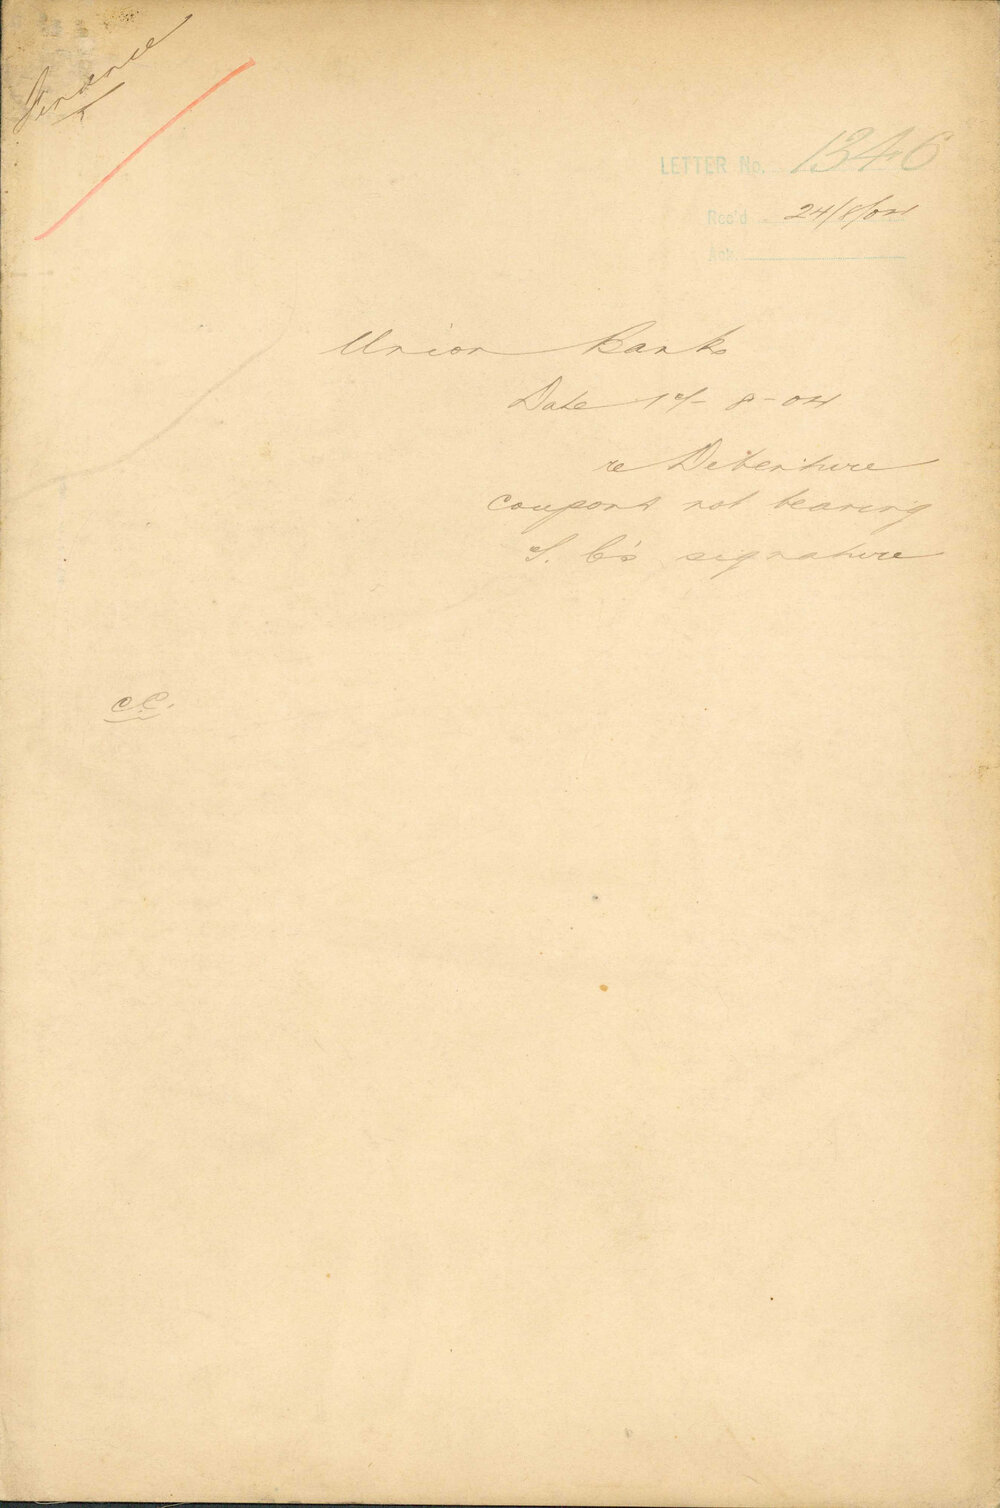 Finance
LETTER No. 1346
Rec'd 24/8/04
Ack.
Union Bank
Date 1 - 8 - 04
re Debenture
coupons not bearing
signature